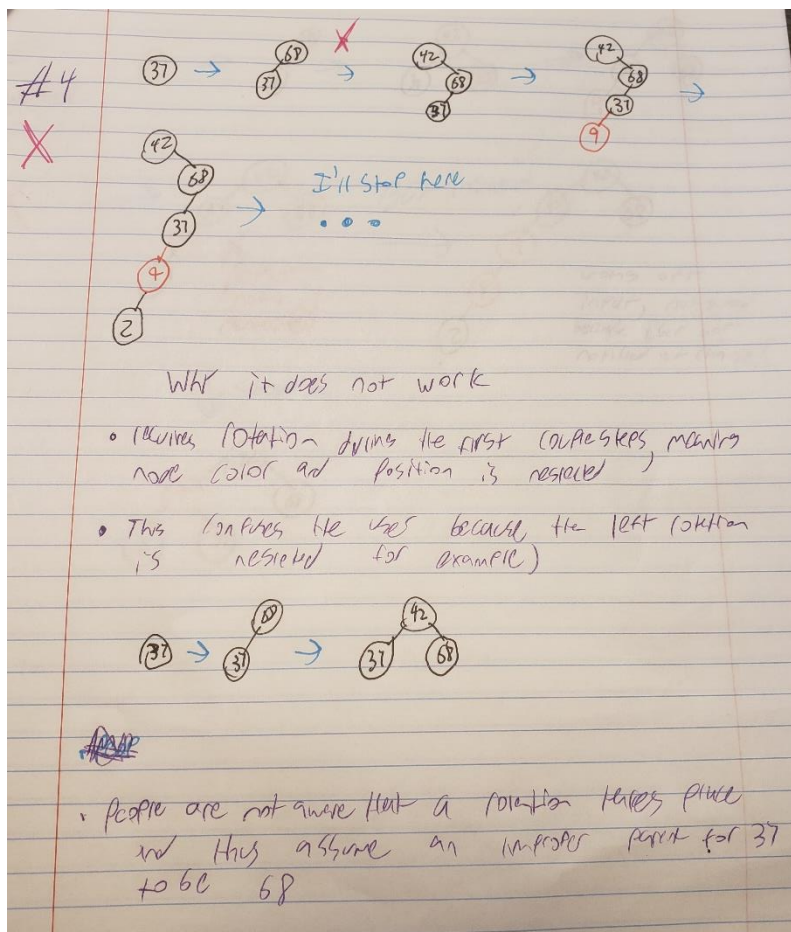 #4
37 → 68 37 X → 42 68 37 → 42 68 37 9 →
X
42 68 37 9 2 → I'll stop here
• • •
Why it does not work
• requires rotation during the first couple steps, meaning
node color and position is neglected
• This confuses the user because the left rotation
is neglected for example)
37 → 68 37 → 42 37 68
• People are not aware that a rotation takes place
and thus assume an improper parent for 37
to be 68